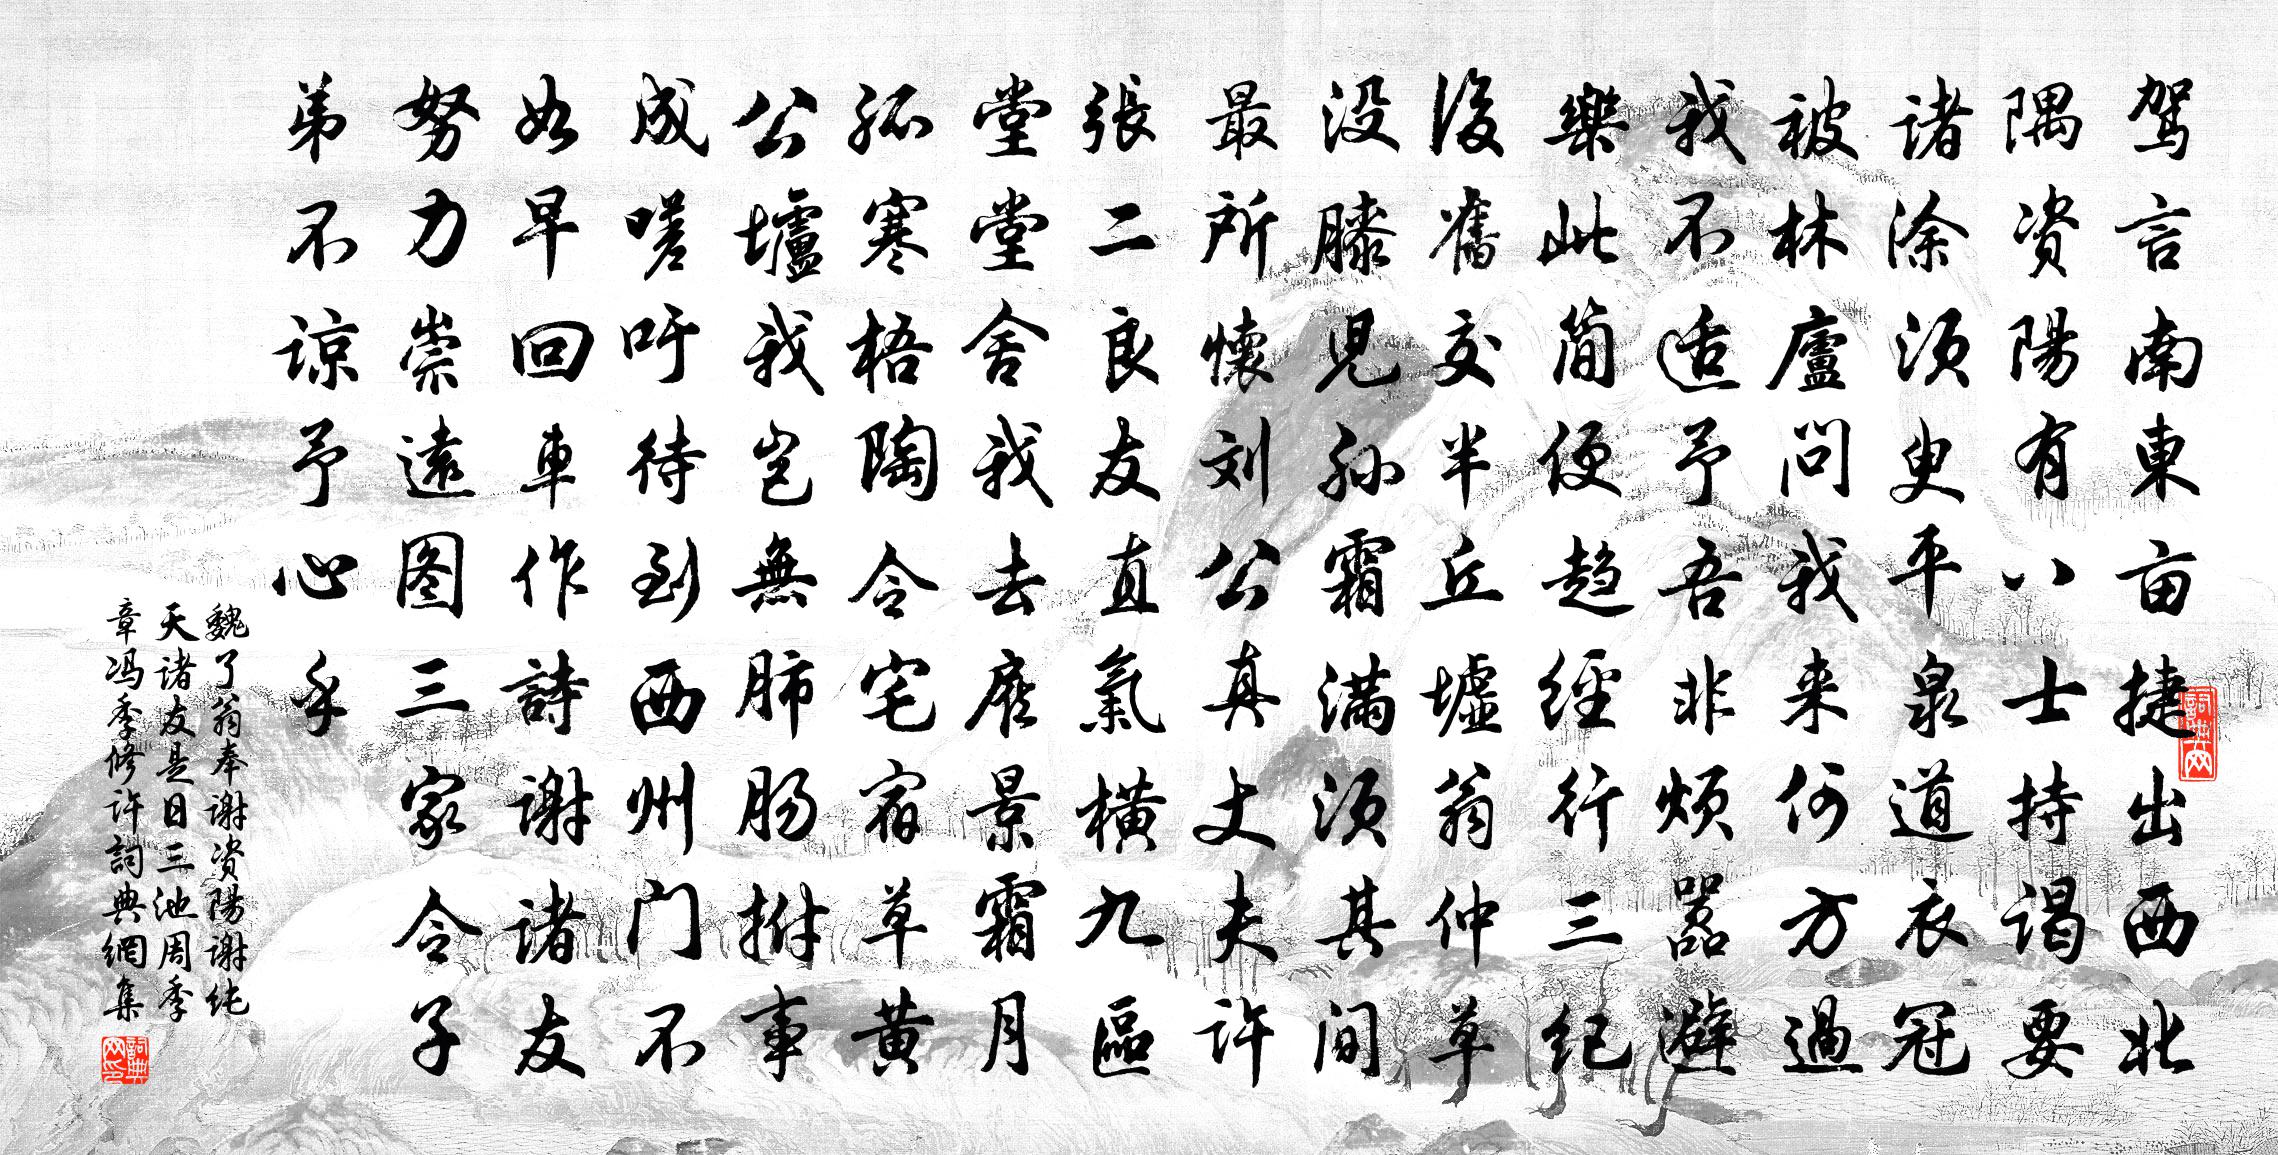 驾言南東亩捷出西北
隅资陽有八士持谒要
诸涂须史平泉道衣冠
被林廬问我来何方過
我不适予吾非烦嚣避
樂此简便趋經行三纪
後舊交半丘墟翁仲草
没膝児孙霜满须其间
最所懷刘公真丈夫许
張二良友直氣横九區
堂堂舍我去雁景霜月
孤寒梧陶令宅宿草黄
公壚我岂無肺肠拊事
成嗟吁待到西州门不
如早回車作詩謝诸友
努力崇遠图三家令子
弟不谅予心乎
魏了翁奉谢资陽谢纯
天诸友是日三池周季
章冯季修许詞典網集
詞典网
詞典网印